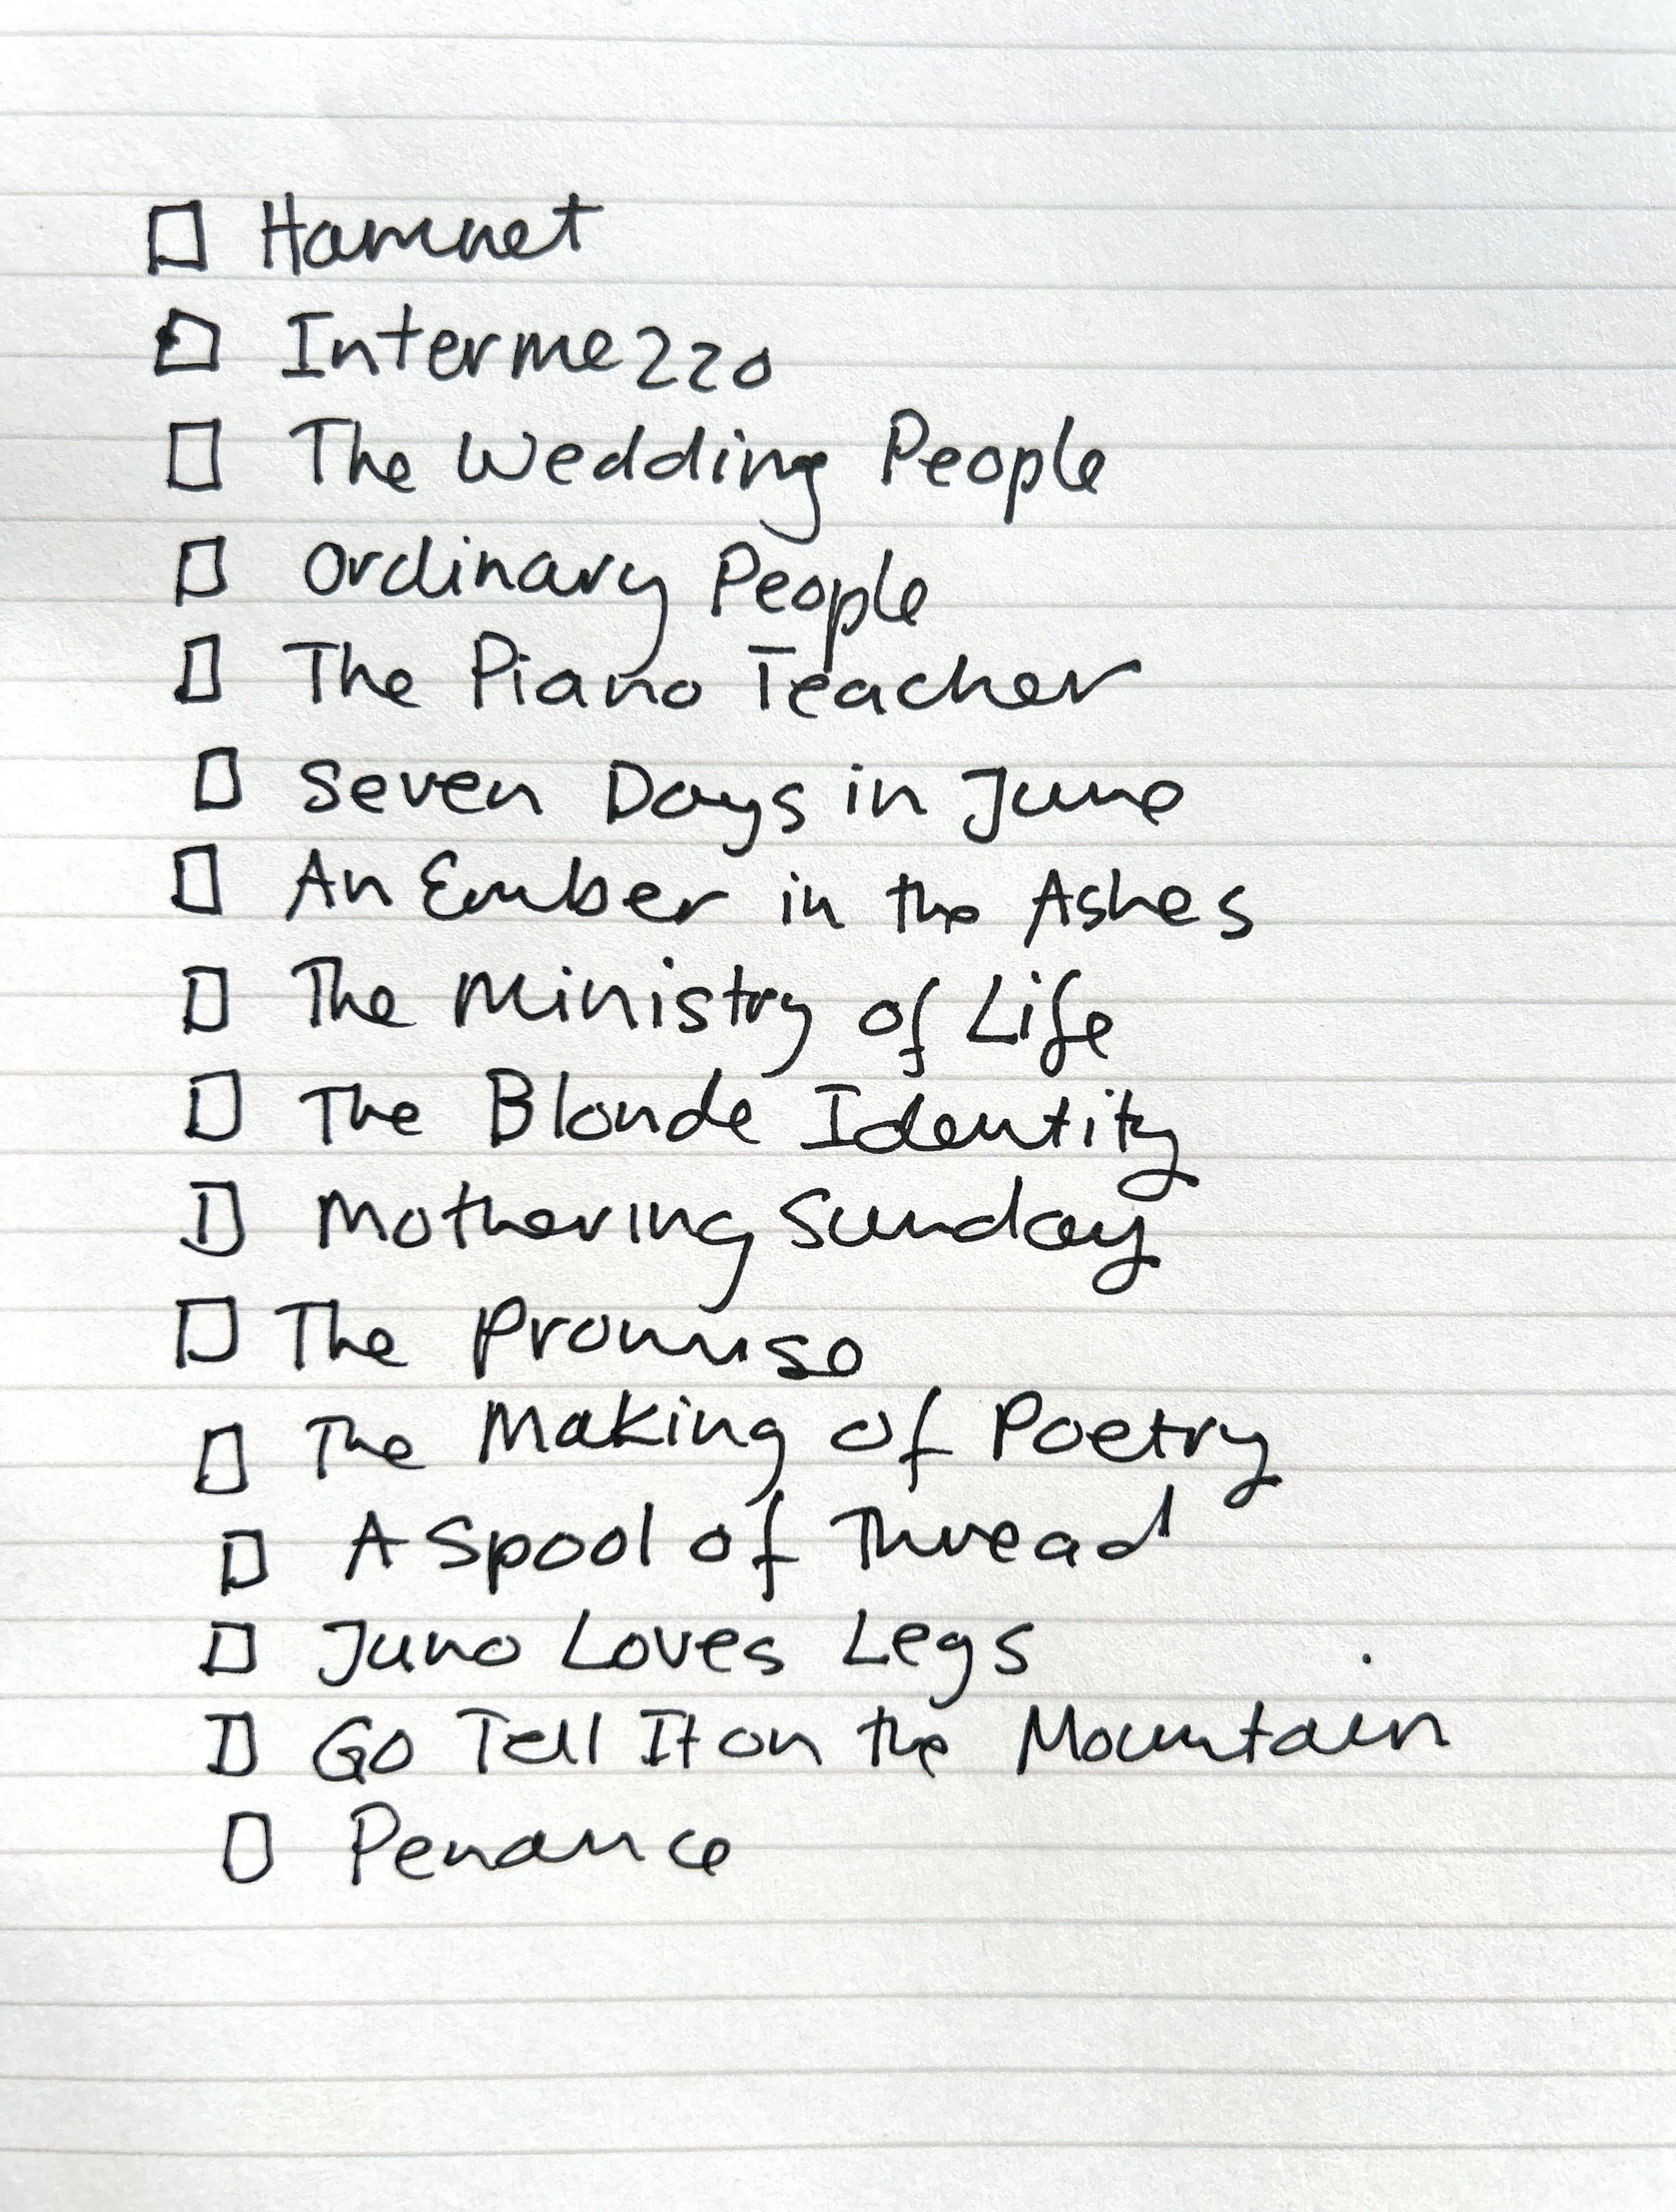 Hamnet
Intermezzo
The Wedding People
Ordinary People
The Piano Teacher
Seven Days in June
An Ember in the Ashes
The Ministry of Life
The Blonde Identity
Mothering Sunday
The Promise
The Making of Poetry
A Spool of Thread
Juno Loves Legs
Go Tell It on the Mountain
Penance